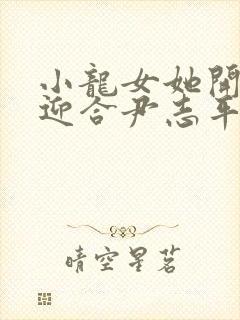 小龍女她開
迎合尹志平
晴空星茗